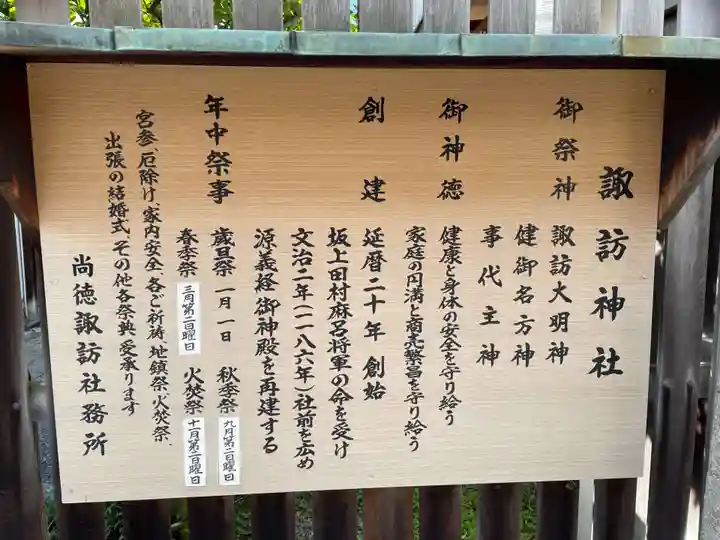 諏訪神社
御祭神
諏訪大明神
健御名方神
事代主神
御神徳
健康と身体の安全を守り給う
家庭の円満と商売繁昌を守り給う
創建
延暦二十年 創始
坂上田村麻呂将軍の命を受け
文治二年(一一八六年)社前を広め
源義経御神殿を再建する
年中祭事
歳旦祭 一月一日
秋季祭 九月第二日曜日
春季祭 三月第二日曜日
火焚祭 十一月第二日曜日
宮参、厄除け、家内安全、各ご祈祷、地鎮祭、火焚祭、
出張の結婚式、その他各祭典、受承ります
尚徳諏訪社務所